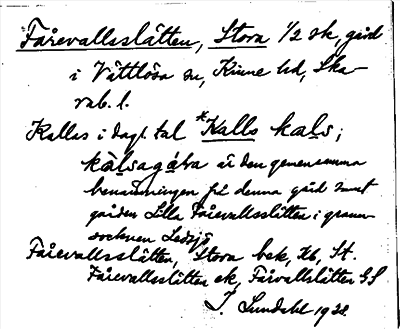 Fårevallsslätten, Stora 1/2 sk, gård
i Vättlösa sn, Kinne hd, Ska-
rab. l.
Kallas i dagl. tal *Kalls kaḷs;
kàḷsagáḷa är den gemensamma
benämningen på denna gård samt
gården Lilla Fårevallsslätten i grann-
socknen Ledsjö
Fårevallsslätten, Stora bsk, Kb, St.
Fårevallsslätten ek, Fårvallslätten GS
J. Sundahl 1928.